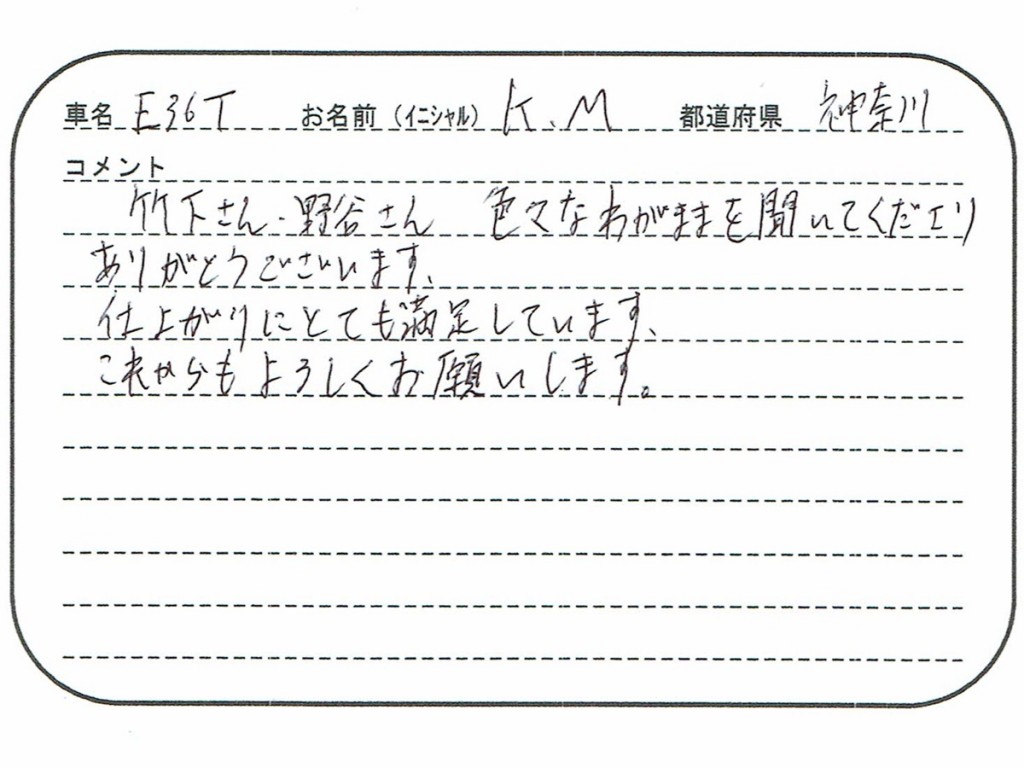 車名 E36T お名前（イニシャル） K.M 都道府県 神奈川
コメント
竹下さん・野谷さん 色々なわがままを聞いてくださり
ありがとうございます。
仕上がりにとても満足しています、
これからもよろしくお願いします。